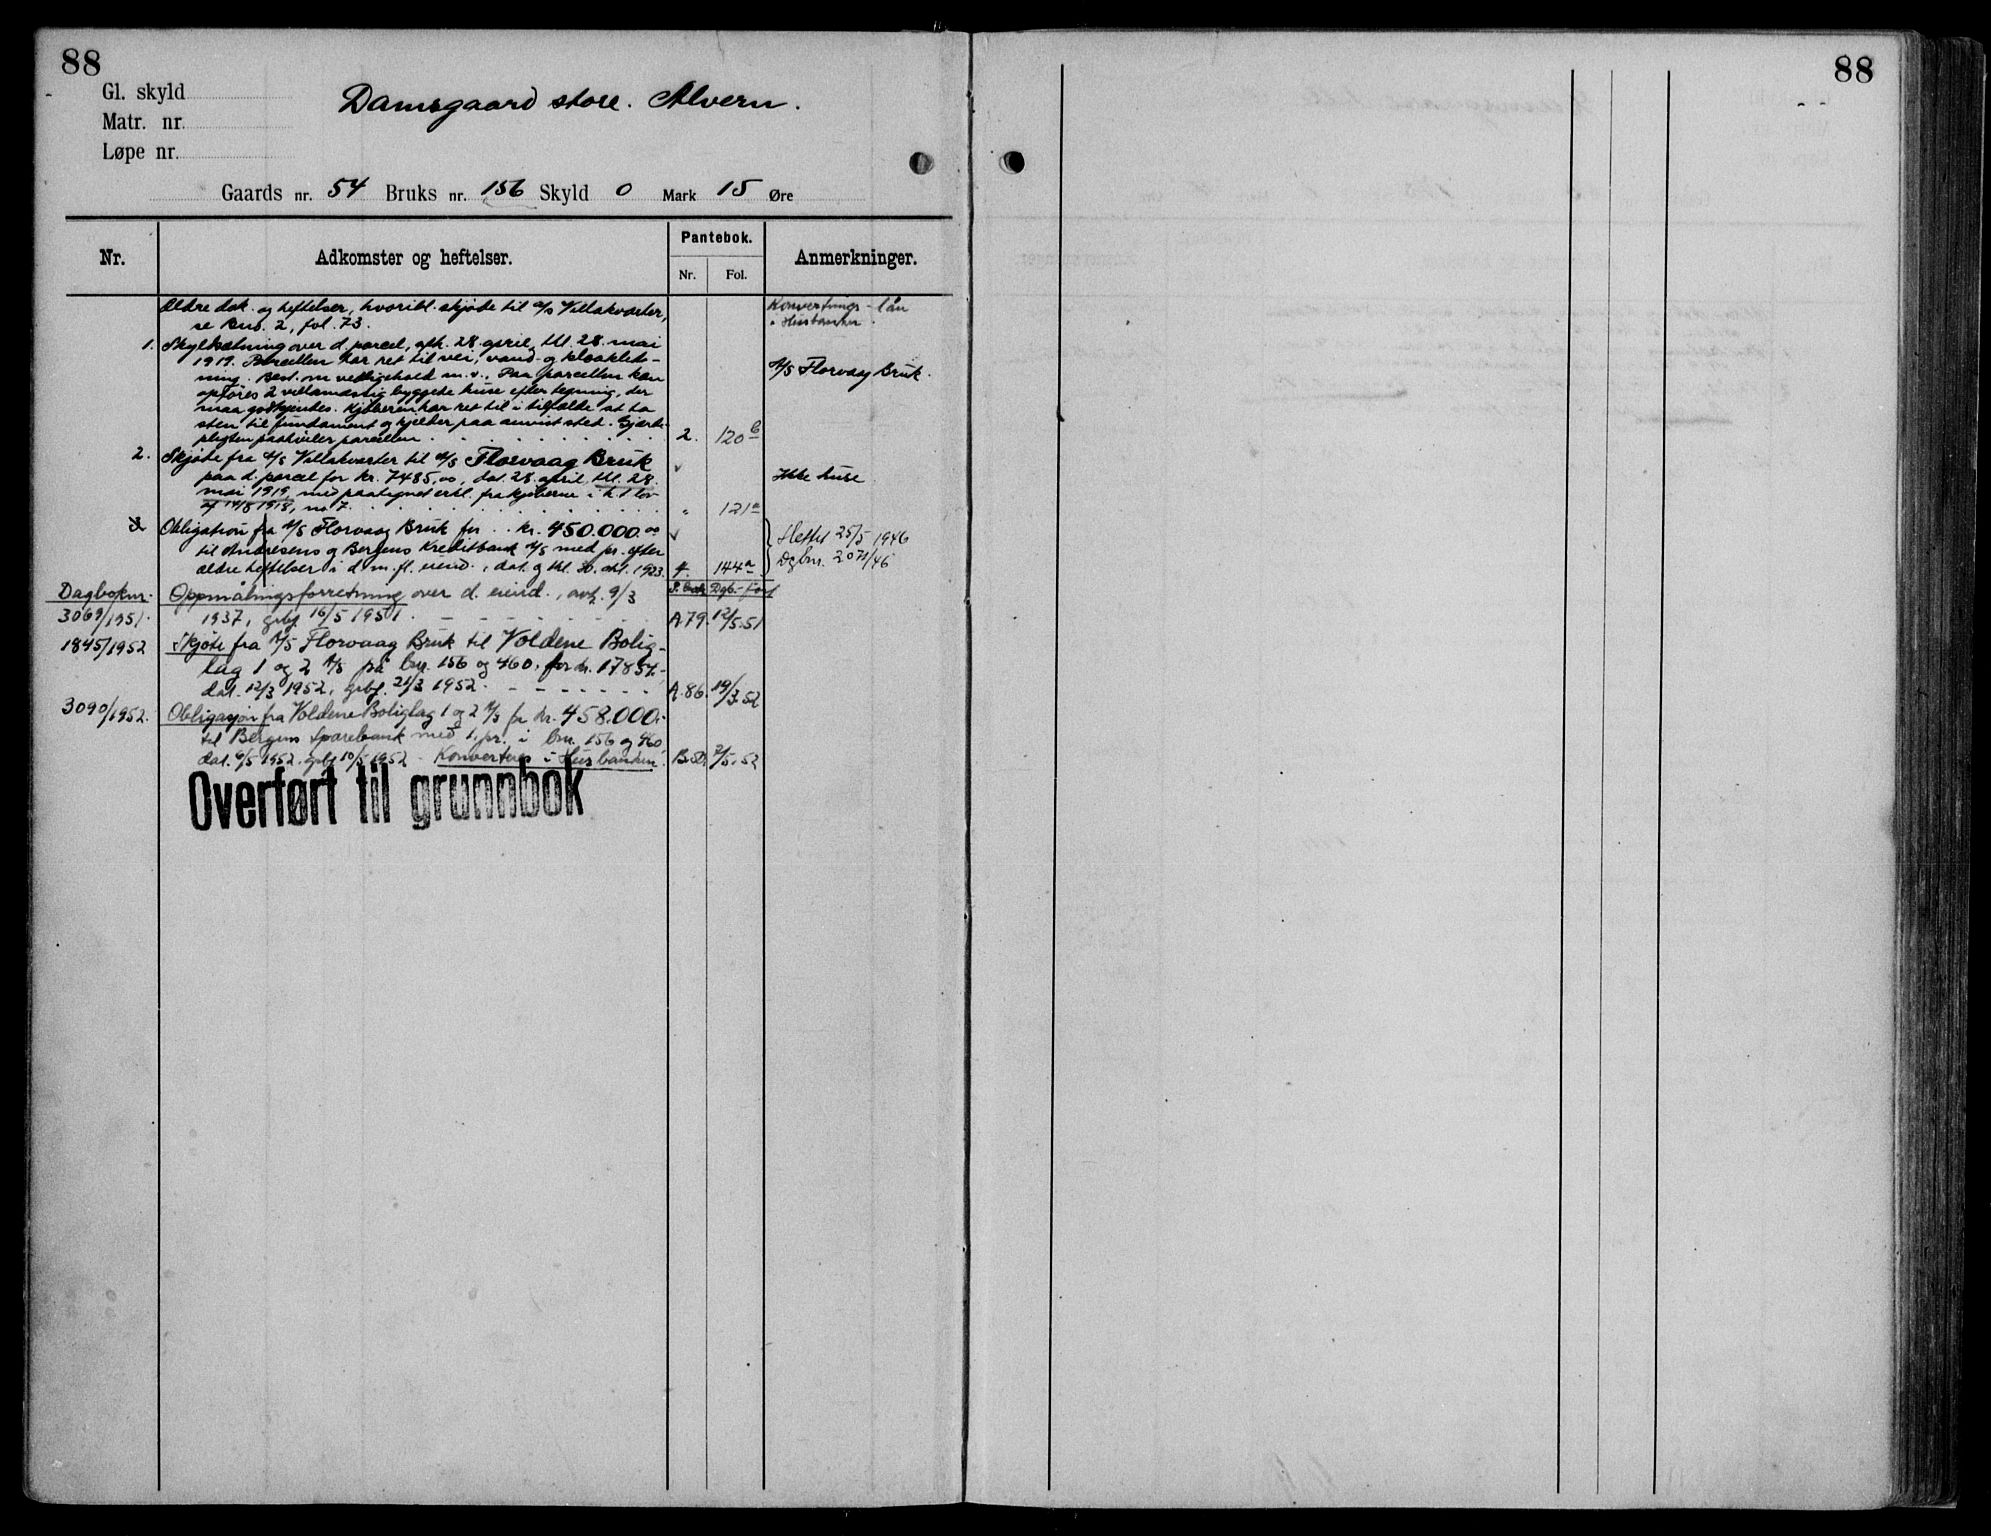 88
Gl. skyld
Matr. nr.
Løpe nr.
Damsgaard store. Alvern.
Gaards nr. 54 Bruks nr. 156 Skyld 0 Mark 15 Øre
Nr.
Adkomster og heftelser.
Pantebok.
Nr. Fol.
Anmerkninger.
Ældre dok. og heftelser, hvoribl. skjøte til A/S Villakvarter,
se Bus. 2, fol. 73.
Konverterings-lån
i Husbanken.
1. Skyldsætning over d. parcel, afh. 28. april, tl. 28. mai
1919. Parcellen har ret til vei, vand- og kloakled-
ning. Best. om vedligehold m.v. Paa parcellen kan
opføres 2 villamæssig byggede huse efter tegning, der
maa godkjendes. Kjøberen har ret til i tilfælde at ta
sten til fundament og kjelder paa anvist sted. Gjærde-
pligten paahviler parcellen 2. 120b
A/S Florvaag Bruk.
2. Skjøte fra A/S Villakvarter til A/S Florvaag Bruk
paa d. parcel for kr. 7485,00, dat. 28. april, tl. 28.
mai 1919, med paategnet erkl. fra kjøberne i h. t. lov
af 14/8 1918, no 7. " 121a
Ikke huse
3. Obligation fra A/S Florvaag Bruk for kr. 450.000.00
til Andresens og Bergens Kreditbank A/S med pr. efter
ældre heftelser i d. m. fl. eiend., dat. og tl. 30. okt. 1923. 4. 144a
Slettet 25/5 1946
Dgbnr. 2071/46
Dagboknr. Oppmålingsforretning over d. eiend., avh. 9/3
3069/1951. 1937, grbf. 16/5 1951. A.79. 12/5.51
P.bok Dgb.-ført
1845/1952 Skjøte fra A/S Florvaag Bruk til Voldene Bolig-
lag 1 og 2 A/S på bnr. 156 og 460, for kr. 17854.-
dat. 12/3 1952, grbf. 21/3 1952. A.86. 19/3.52
3090/1952. Obligasjon fra Voldene Boliglag 1 og 2 A/S for kr. 458.000.-
til Bergens Sparebank med 1. pr. i bnr. 156 og 460,
dat. 6/5 1952. grbf. 10/5 1952. Konverteres i Husbanken. 7/5.52
Overført til grunnbok
88